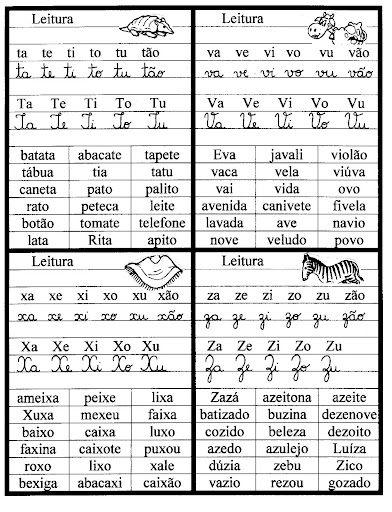 Leitura
ta te ti to tu tão
ta te ti to tu tão
Ta Te Ti To Tu
Ta Te Ti To Tu
batata abacate tapete
tábua tia tatu
caneta pato palito
rato peteca leite
botão tomate telefone
lata Rita apito
Leitura
va ve vi vo vu vão
va ve vi vo vu vão
Va Ve Vi Vo Vu
Va Ve Vi Vo Vu
Eva javali violão
vaca vela viúva
vai vida ovo
avenida canivete fivela
lavada ave navio
nove veludo povo
Leitura
xa xe xi xo xu xão
xa xe xi xo xu xão
Xa Xe Xi Xo Xu
Xa Xe Xi Xo Xu
ameixa peixe lixa
Xuxa mexeu faixa
baixo caixa luxo
faxina caixote puxou
roxo lixo xale
bexiga abacaxi caixão
Leitura
za ze zi zo zu zão
za ze zi zo zu zão
Za Ze Zi Zo Zu
Za Ze Zi Zo Zu
Zazá azeitona azeite
batizado buzina dezenove
cozido beleza dezoito
azedo azulejo Luíza
dúzia zebu Zico
vazio rezou gozado